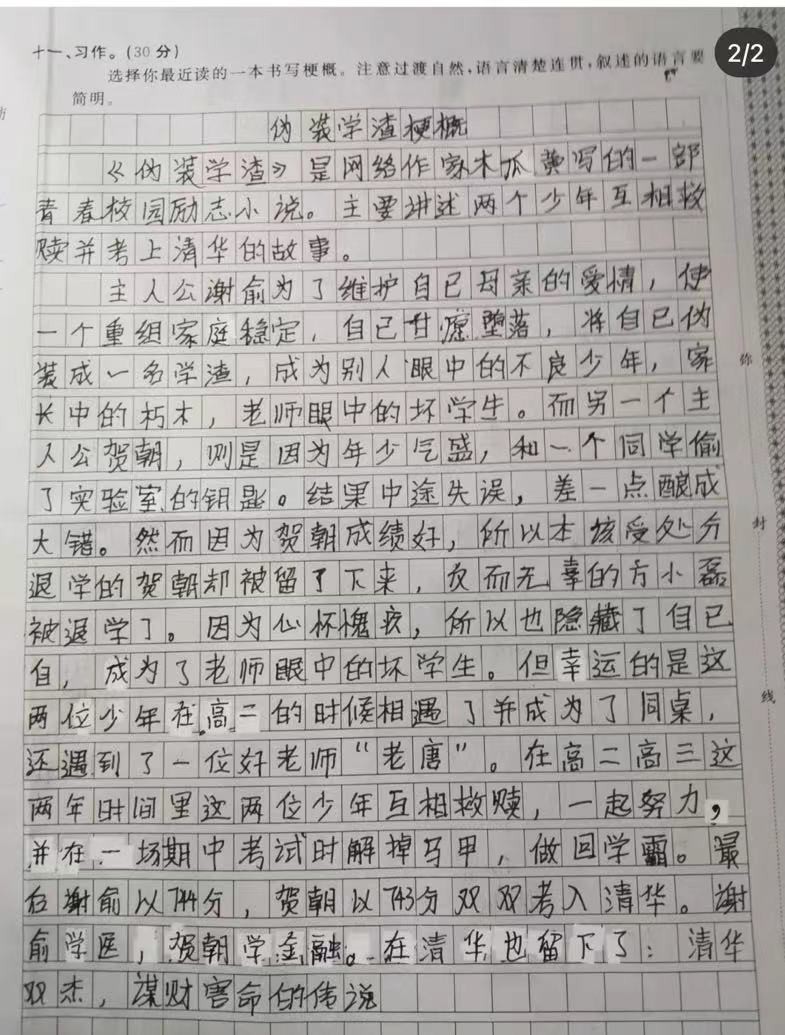 2/2
十一、习作。(30分)
选择你最近读的一本书写梗概。注意过渡自然,语言清楚连贯,叙述的语言要
简明。
伪装学渣梗概
《伪装学渣》是网络作家木瓜黄写的一部
青春校园励志小说。主要讲述两个少年互相救
赎并考上清华的故事。
主人公谢俞为了维护自己母亲的爱情，使
一个重组家庭稳定，自己甘愿堕落，将自己伪
装成一名学渣，成为别人眼中的不良少年，家
长中的朽木，老师眼中的坏学生。而另一个主
人公贺朝，则是因为年少气盛，和一个同学偷
了实验室的钥匙。结果中途失误，差一点酿成
大错。然而因为贺朝成绩好，所以本该受处分
退学的贺朝却被留了下来，反而无辜的方小磊
被退学了。因为心怀愧疚，所以也隐藏了自己
自，成为了老师眼中的坏学生。但幸运的是这
两位少年在高二的时候相遇了并成为了同桌，
还遇到了一位好老师“老唐”。在高二高三这
两年时间里这两位少年互相救赎，一起努力，
并在一场期中考试时解掉马甲，做回学霸。最
后谢俞以744分，贺朝以743分双双考入清华。谢
俞学医，贺朝学金融。在清华也留下了：清华
双杰，谋财害命的传说
弥
封
线